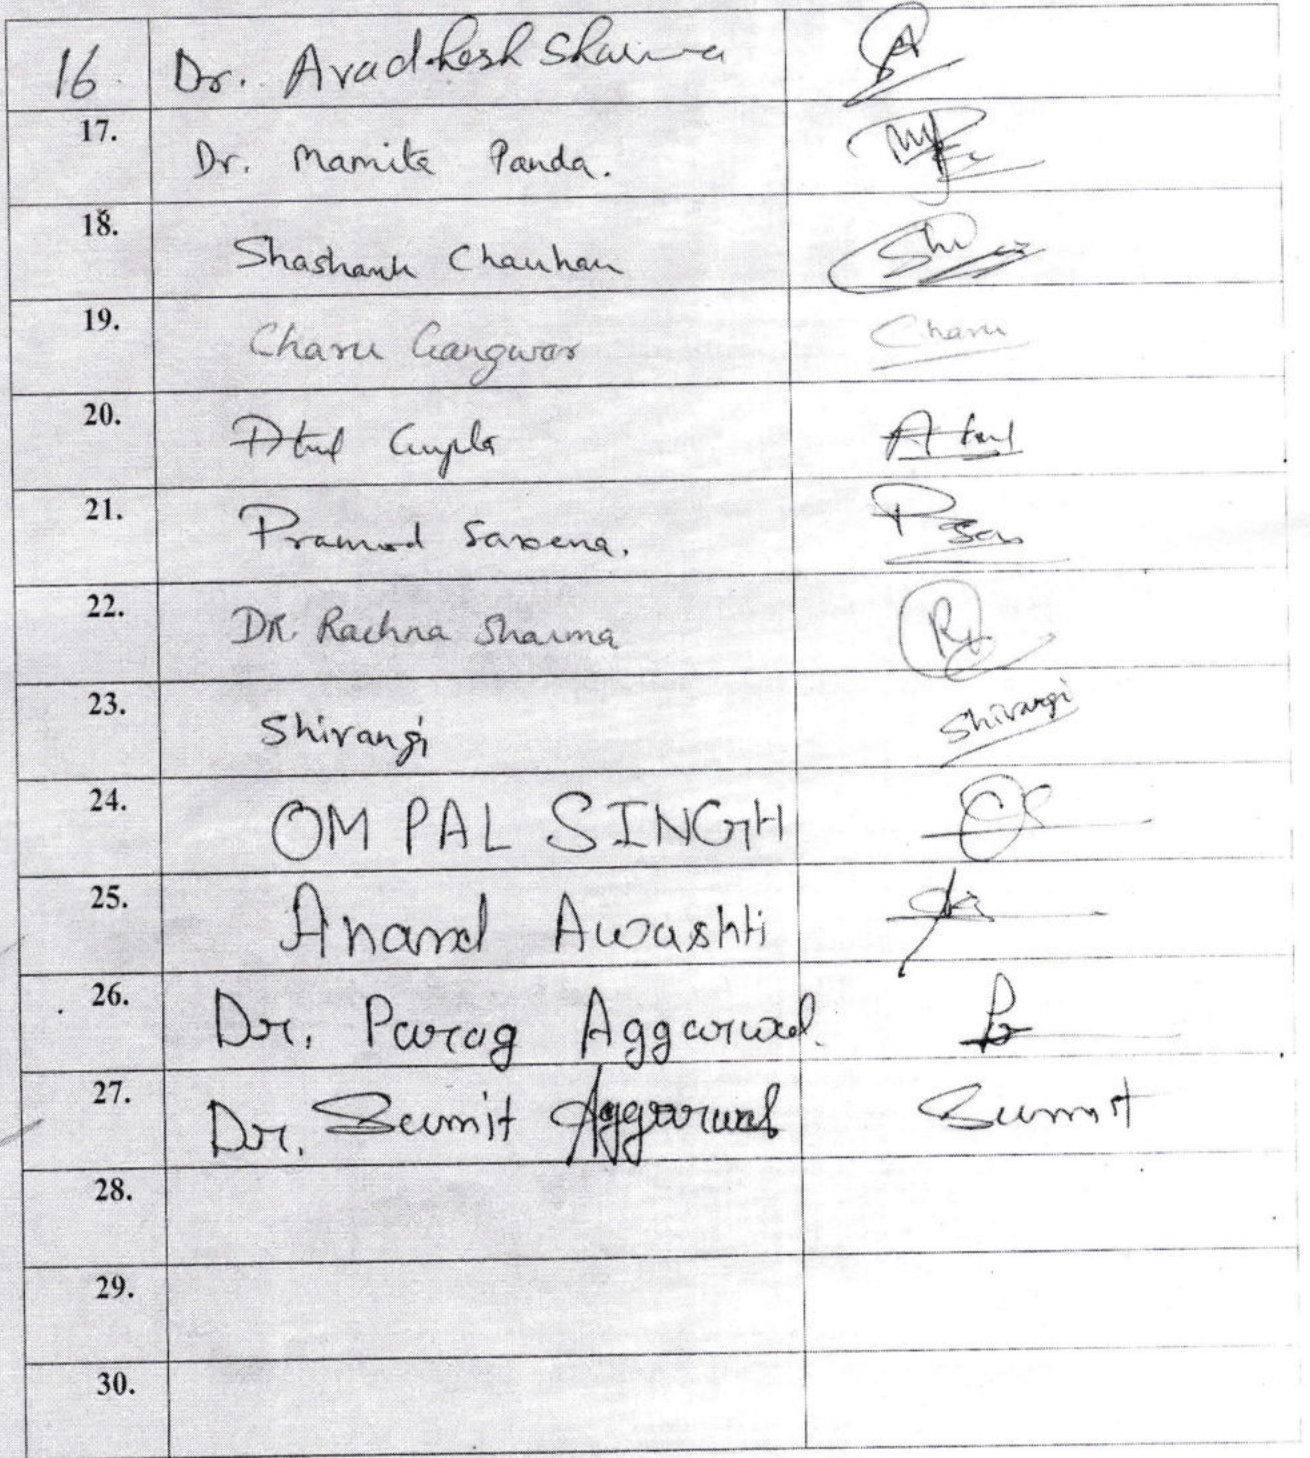 16 Dr. Avadhesh Sharma
17. Dr. Mamita Panda.
18. Shashank Chauhan Shi
19. Charu Gangwar Charu
20. Atul Gupta Atul
21. Pramod Saxena.
22. DR. Rachna Sharma
23. Shivangi Shivangi
24. OM PAL SINGH
25. Anand Awashti
26. Dr. Parag Aggarwal.
27. Dr. Sumit Aggarwal Sumit
28.
29.
30.